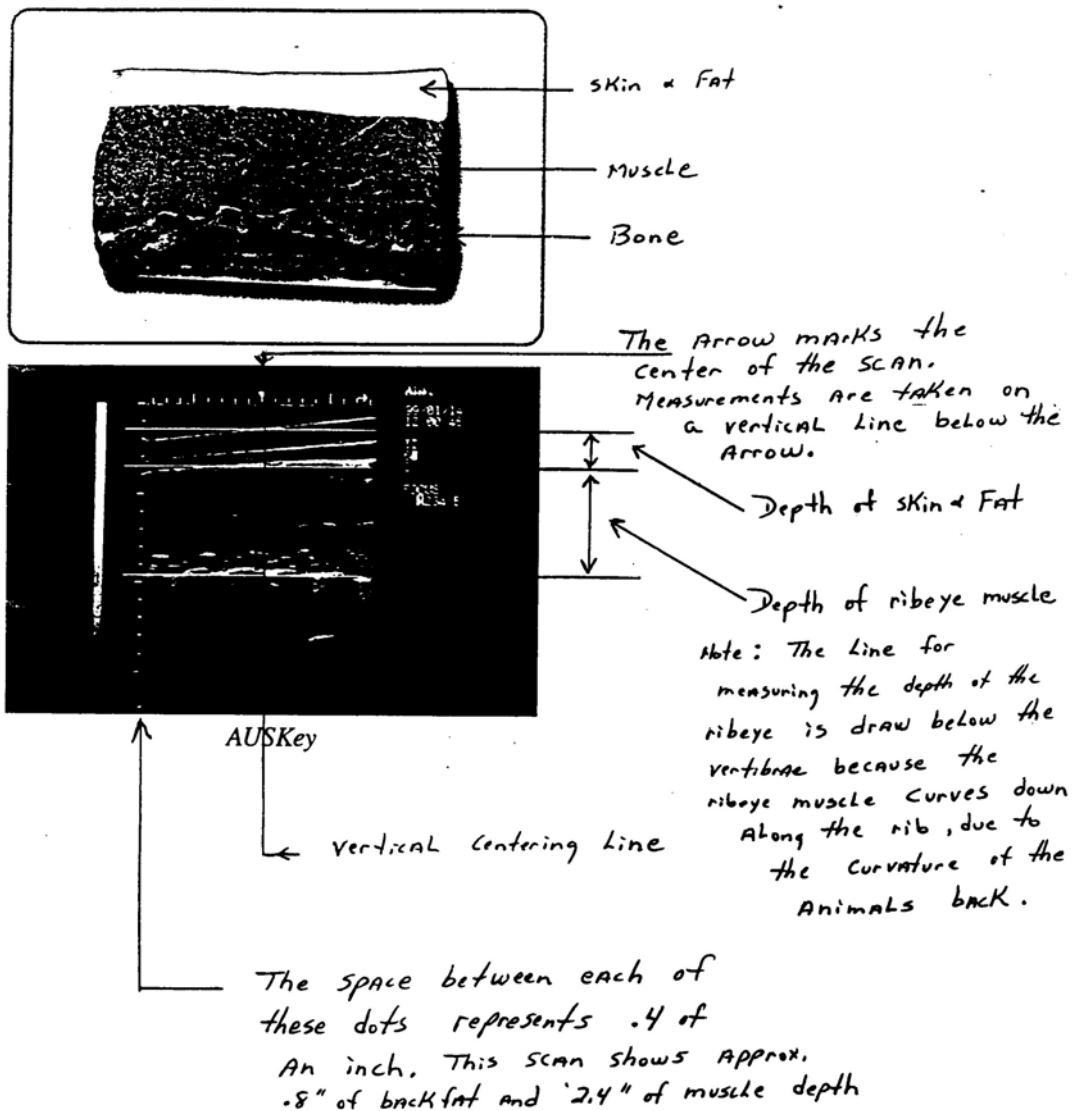 Skin & Fat
Muscle
Bone
The Arrow marks the
center of the scan.
Measurements are taken on
a vertical Line below the
Arrow.
Depth of skin & Fat
Depth of ribeye muscle
Note: The Line for
measuring the depth of the
ribeye is draw below the
vertibrae because the
ribeye muscle curves down
Along the rib, due to
the curvature of the
Animals back.
AUSKey
vertical Centering Line
The space between each of
these dots represents .4 of
An inch. This scan shows Approx.
.8" of backfat and 2.4" of muscle depth